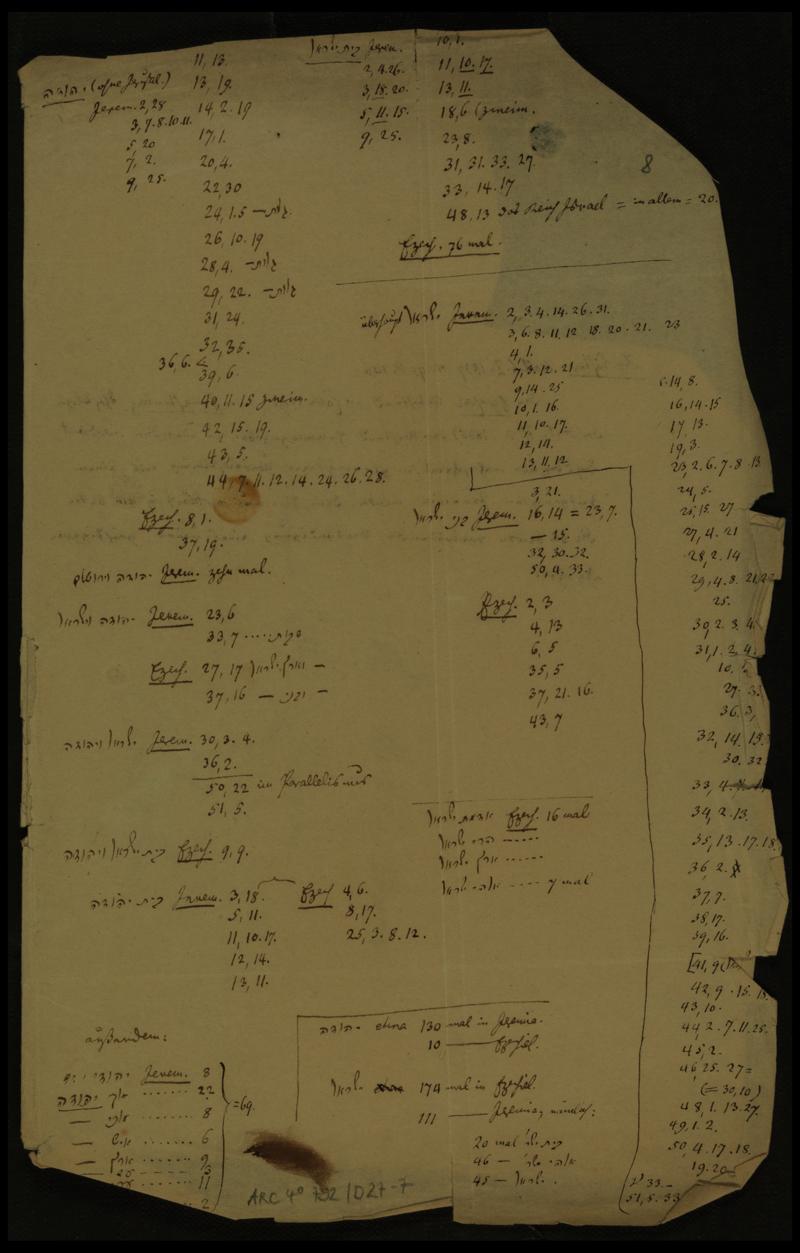 יהודה (ohne
Jerem. 2,28
3, 7. 8. 10. 11.
5, 20
7, 2.
9, 25.
11, 13.
13, 19.
14, 2. 19
17, 1.
20, 4.
22, 30
24, 1. 5 — גלות
26, 10. 19
28, 4. — גלות
29, 22. — גלות
31, 24.
32, 35.
36, 6.
39, 6.
40, 11. 15 zweim.
42, 15. 19.
43, 5.
44, 7. 11. 12. 14. 24. 26. 28.
Ezech. 8, 1.
37, 19.
יהודה וירושלם Jerem. zehn mal.
יהודה וישראל Jerem. 23, 6
33, 7 .... שבות
Ezech. 27, 17 וארץ ישראל —
37, 16 — ובני —
ישראל ויהודה Jerem. 30, 3. 4.
36, 2.
50, 22 im Parallelismus
51, 5.
בית ישראל ויהודה Ezech. 9, 9.
בית יהודה Jerem. 3, 18.
5, 11.
11, 10. 17.
12, 14.
13, 11.
Ezech 4, 6.
8, 17.
25, 3. 8. 12.
außerdem:
Jerem. 8
יהודה ....... 22
— ....... 8
— איש ....... 6
— ארץ ....... 9
— ערי ....... 11
2
= 69.
בית ישראל Jerem.
2, 4. 26.
3, 18. 20.
5, 11. 15.
9, 25.
10, 1.
11, 10. 17.
13, 11.
18, 6 (zweim.
23, 8.
31, 31. 33. 27.
33, 14. 17
48, 13 das Reich Israel = in allem = 20.
8
Ezech. 76 mal.
überhaupt ישראל Jerem. 2, 3. 4. 14. 26. 31.
3, 6. 8. 11. 12 18. 20. 21. 23
4, 1.
7, 3. 12. 21
9, 14. 25
10, 1. 16.
11, 10. 17.
12, 14.
13, 11. 12
14, 8.
16, 14. 15
17, 13.
19, 3.
23, 2. 6. 7. 8. 13
24, 5.
25, 15. 27
27, 4. 21
28, 2. 14
29, 4. 8. 21
25.
30, 2. 3. 4.
31, 1. 2. 4.
10.
27. 33
36. 3
32, 14. 15.
30. 32
33, 4.
34, 2. 13.
35, 13. 17. 18.
36, 2.
37, 7.
38, 17.
39, 16.
[41, 9
42, 9. 15. 18.
43, 10.
44, 2. 7. 11. 25.
45, 2.
46, 25. 27 =
(= 30, 10)
48, 1. 13. 27.
49, 1. 2.
50, 4. 17. 18.
19. 20
33 —
51, 5. 33
3, 21.
בני ישראל Jerem. 16, 14 = 23, 7.
— 15.
32, 30. 32.
50, 4. 33.
Ezech. 2, 3
4, 13
6, 5
35, 5
37, 21. 16.
43, 7
אדמת ישראל Ezech. 16 mal
הרי ישראל ......
ארץ ישראל ......
אלהי ישראל .... 7 mal
יהודה etwa 130 mal in Jeremia.
10 — Ezechiel.
ישראל 174 mal in Ezechiel.
111 — Jeremia, nämlich:
20 mal בית ישר׳
46 — אלהי ישר׳
45 — ישראל.
ARC 4° 792/D27-7